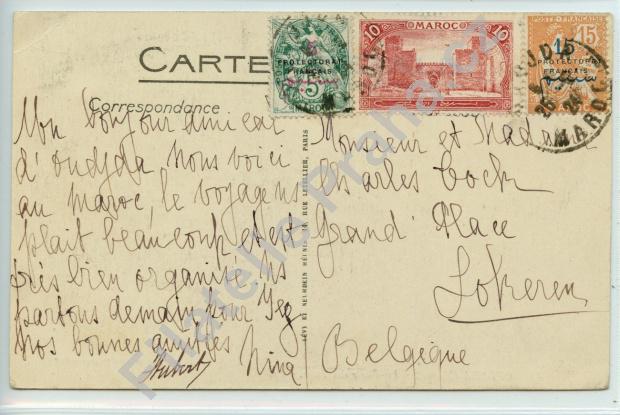 CARTE
Correspondance
5
PROTECTORAT
FRANÇAIS
5
MAROC
10 MAROC 10
POSTE FRANÇAISE
15 15
PROTECTORAT
FRANÇAIS
OUJDA
26
MAROC
Mon bonjour amical
d'Oudjda nous voici
au Maroc, le voyage ns
plait beaucoup et est
très bien organisé, ns
partons demain pour Fez
Nos bonnes amitiés
Hubert Nina
Monsieur et Madame
Charles Cock
Grand' Place
Lokeren
Belgique
LÉVY ET NEURDEIN RÉUNIS, 44, RUE LETELLIER, PARIS
Filatelie Praha